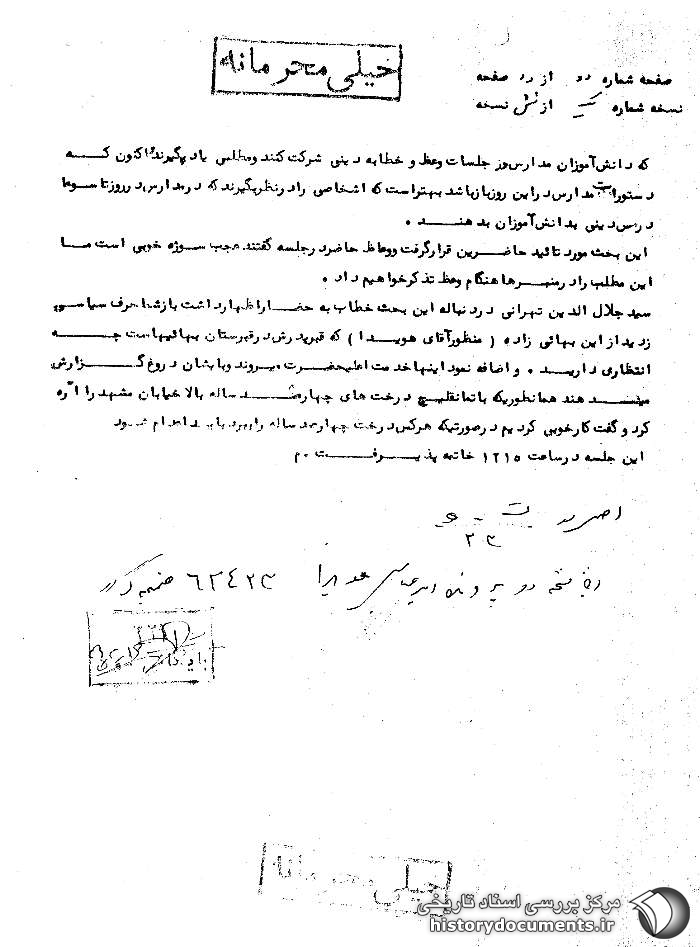 خیلی محرمانه
صفحه شماره دو از دو صفحه
نسخه شماره یک از شش نسخه
که دانش‌آموزان مدارس در جلسات وعظ و خطابه دینی شرکت کنند ومطلبی یاد بگیرند و اکنون که
دستورات مدارس در این روز باز باشد بهتر است که اشخاصی را در نظر بگیرند که در مدارس در روز تاسوعا
درس دینی به دانش‌آموزان بدهند .
این بحث مورد تائید حاضرین قرار گرفت و وعاظ حاضر در جلسه گفتند عجب سوژه خوبی است ما
این مطلب را در منبرها هنگام وعظ تذکر خواهیم داد .
سید جلال الدین تهرانی در دنباله این بحث خطاب به حضار اظهار داشت باز شما حرف سیاسی
زدید از این بهائی زاده ( منظور آقای هویدا ) که قبر پدرش در قبرستان بهائیهاست چه
انتظاری دارید . و اضافه نمود اینها خدمت اعلیحضرت میروند و بایشان دروغ گزارش
میدهند همانطوریکه باتمانقلیچ درخت های چهارصد ساله بالا خیابان مشهد را اره
کرد و گفت کار خوبی کردیم در صورتیکه هرکس درخت چهارصد ساله را ببرد باید اعدام شود
این جلسه در ساعت ۱۲۱۵ خاتمه پذیرفت .م
۲۳
در پرونده امیر عباس هویدا ۶۲۴۲۳ ضمیمه گردد
بایگانی
خیلی محرمانه
مرکز بررسی اسناد تاریخی
historydocuments.ir